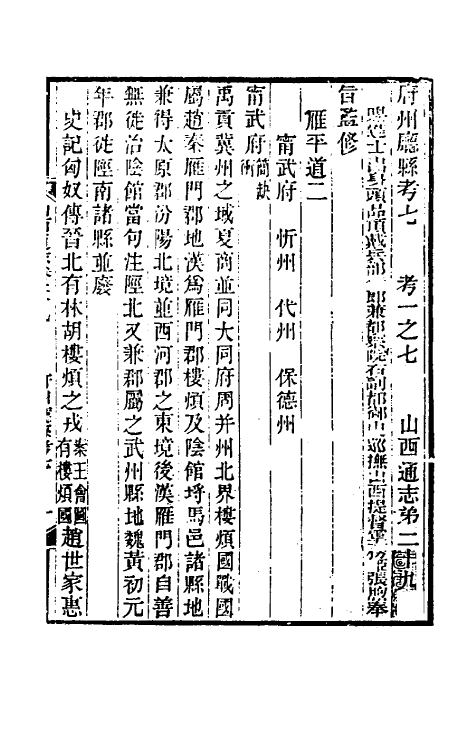 府州廳縣考七　考一之七　山西通志第二十九
賜進士出身頭品頂戴兵部侍郎兼都察院右副都御史巡撫山西提督軍務張煦奉
旨監修
雁平道二
甯武府　忻州　代州　保德州
甯武府簡缺
禹貢冀州之域夏商並同大同府周并州北界樓煩國戰國
屬趙秦雁門郡地漢爲雁門郡樓煩及陰館埒馬邑諸縣地
兼得太原郡汾陽北境並西河郡之東境後漢雁門郡自善
無徙治陰館當句注陘北又兼郡屬之武州縣地魏黃初元
年郡徙陘南諸縣並廢
史記匈奴傳晉北有林胡樓煩之戎案王會圖有樓煩國趙世家惠